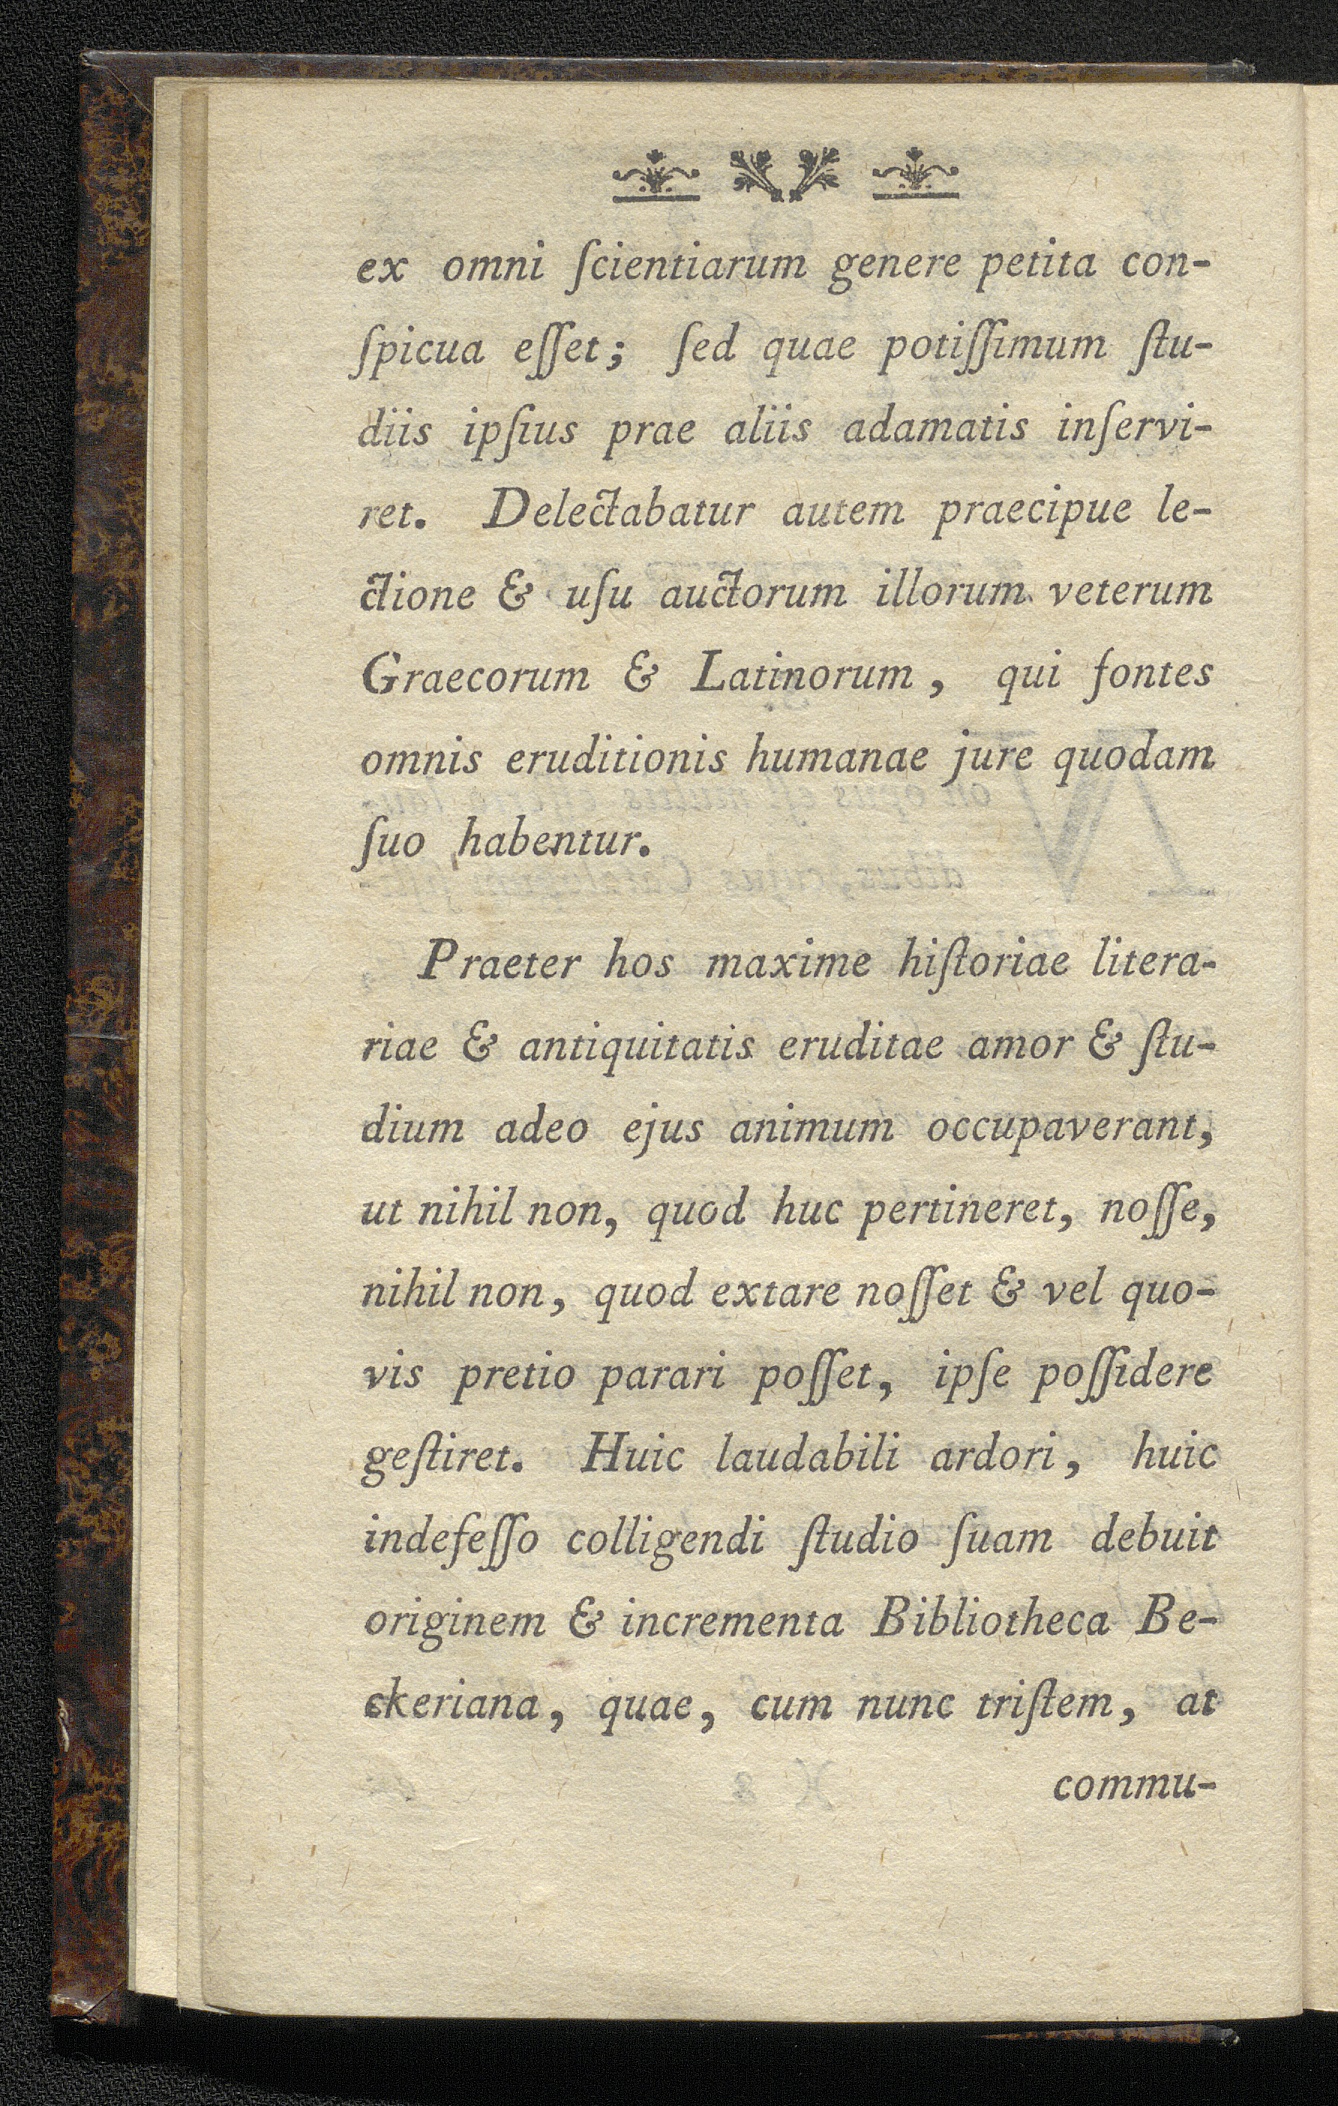 ex omni ſcientiarum genere petita con-
ſpicua eſſet; ſed quae potiſſimum ſtu-
diis ipſius prae aliis adamatis inſervi-
ret. Delectabatur autem praecipue le-
ctione & uſu auctorum illorum veterum
Graecorum & Latinorum, qui fontes
omnis eruditionis humanae jure quodam
ſuo habentur.
Praeter hos maxime hiſtoriae litera-
riae & antiquitatis eruditae amor & ſtu-
dium adeo ejus animum occupaverant,
ut nihil non, quod huc pertineret, noſſe,
nihil non, quod extare noſſet & vel quo-
vis pretio parari poſſet, ipſe poſſidere
geſtiret. Huic laudabili ardori, huic
indefeſſo colligendi ſtudio ſuam debuit
originem & incrementa Bibliotheca Be-
ckeriana, quae, cum nunc triſtem, at
commu-